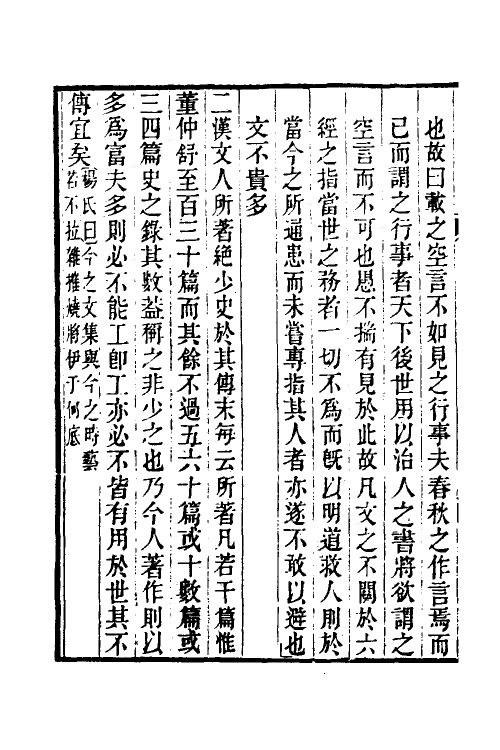 也故曰載之空言不如見之行事夫春秋之作言焉而
已而謂之行事者天下後世用以治人之書將欲謂之
空言而不可也愚不揣有見於此故凡文之不關於六
經之指當世之務者一切不爲而旣以明道救人則於
當今之所通患而未嘗專指其人者亦遂不敢以避也
文不貴多
二漢文人所著絶少史於其傳末每云所著凡若干篇惟
董仲舒至百三十篇而其餘不過五六十篇或十數篇或
三四篇史之錄其數益稱之非少之也乃今人著作則以
多爲富夫多則必不能工卽工亦必不皆有用於世其不
傳宜矣楊氏曰今之文集與今之時藝
若不拉雜摧燒將伊于何底